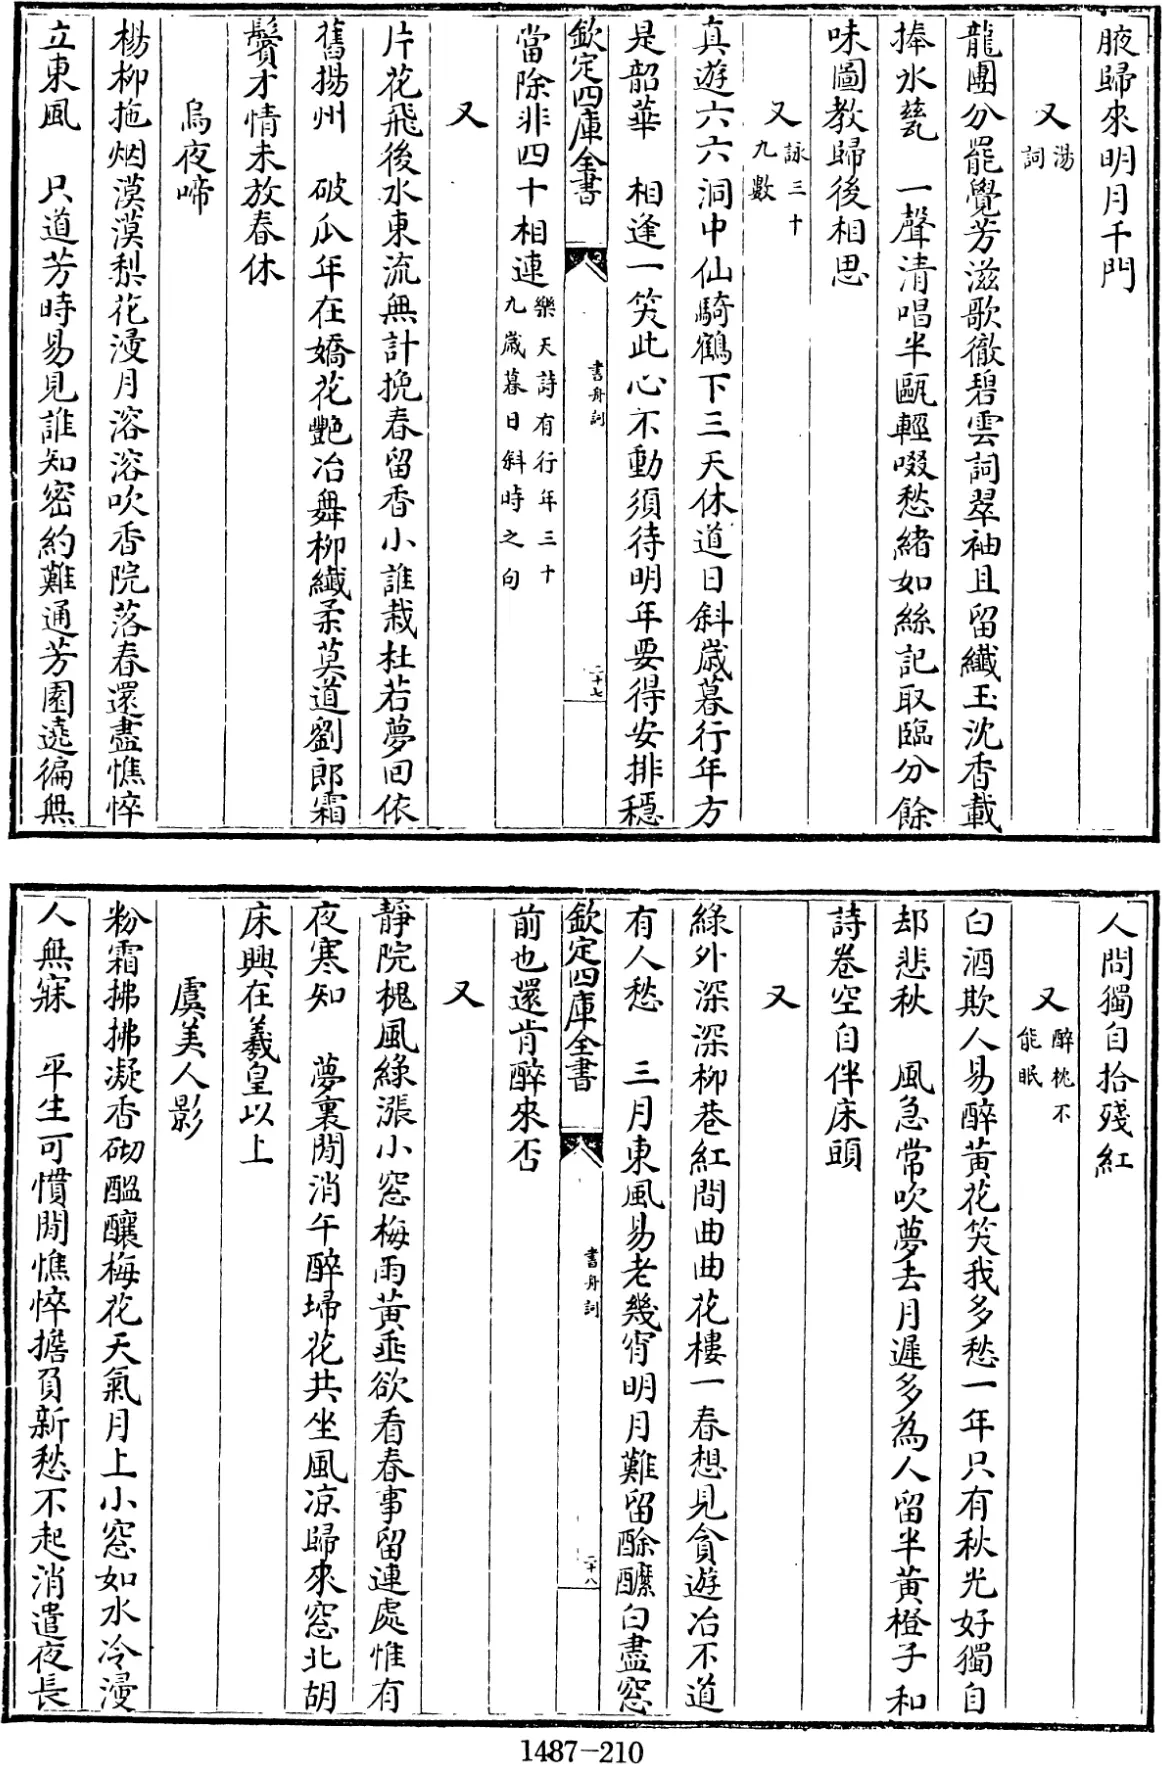 腋歸來明月千門
又湯詞
龍團分罷覺芳滋歌徹碧雲詞翠袖且留纎玉沈香載
捧氷甆　一聲清唱半甌輕啜愁緒如絲記取臨分餘
味圖教歸後相思
又詠三十九數
真遊六六洞中仙騎鶴下三天休道日斜嵗暮行年方
是韶華　相逢一笑此心不動須待明年要得安排穩
欽定四庫全書　書舟詞　二十七
當除非四十相連樂天詩有行年三十九嵗暮日斜時之句
又
片花飛後水東流無計挽春留香小誰栽杜若夢回依
舊揚州　破瓜年在嬌花艷冶舞柳纎柔莫道劉郎霜
鬢才情未放春休
烏夜啼
楊柳拖烟漠漠梨花浸月溶溶吹香院落春還盡憔悴
立東風　只道芳時易見誰知密約難通芳園遶徧無
人問獨自拾殘紅
又醉枕不能眠
白酒欺人易醉黃花笑我多愁一年只有秋光好獨自
却悲秋　風急常吹夢去月遲多為人留半黃橙子和
詩卷空自伴床頭
又
緑外深深柳巷紅間曲曲花樓一春想見貪遊冶不道
有人愁　三月東風易老幾宵明月難留酴醿白盡窓
欽定四庫全書　書舟詞　二十八
前也還肯醉來否
又
靜院槐風緑漲小窓梅雨黃垂欲看春事留連處惟有
夜寒知　夢裏閒消午醉埽花共坐風凉歸來窓北胡
床興在羲皇以上
虞美人影
粉霜拂拂凝香砌醖釀梅花天氣月上小窓如水冷浸
人無寐　平生可慣閒憔悴擔負新愁不起消遣夜長
1487-210